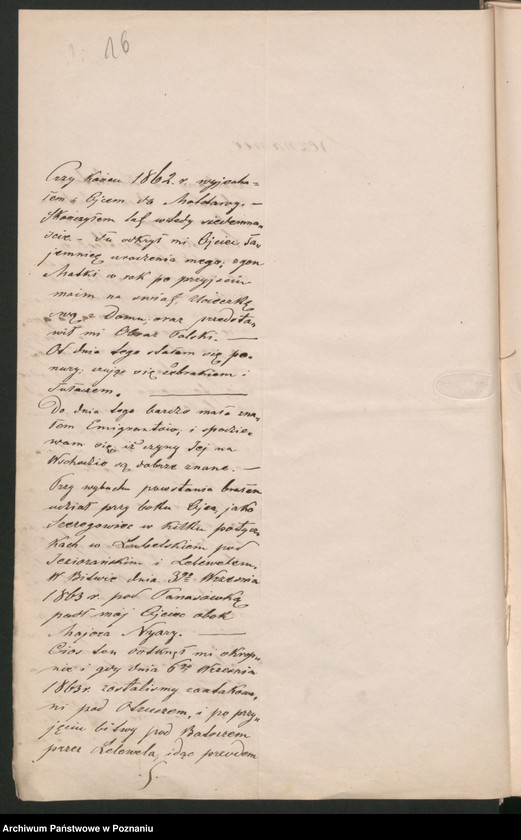 16
Przy końcu 1862. r. wyjecha=
łem z Ojcem do Mołdawy. —
Skończyłem lat wtedy siedemna,
ście. — Tu odkrył mi Ojciec ta,
jemnicę urodzenia mego, zgon
Matki w rok po przyjściu
moim na świat, Ucieczkę
swą z Domu, oraz przedsta,
wił mi Obraz Polski. —
Od dnia tego stałem się po=
nury, czując się żebrakiem i
Tułaczem. —
Do dnia tego bardzo mało zna,
łem Emigrantów, i spodzie=
wam się iż czyny Jej na
Wschodzie są dobrze znane. —
Przy wybuchu powstania brałem
udział przy boku Ojca, jako
Szeregowiec w kilku potycz,
kach w Lubelskiem pod
Jeziorańskim i Lelewelem.
W Bitwie dnia 3go Września
1863 r. pod Panasówką
padł mój Ojciec obok
Majora Nyary. —
Cios ten dotknął mi okrop,
nie i gdy dnia 6go Września
1863 r. zostaliśmy zaatakowa,
ni pod Otroczem, i po przy,
jęciu bitwy pod Batorzem
przez Lelewela, idąc przodem
Archiwum Państwowe w Poznaniu